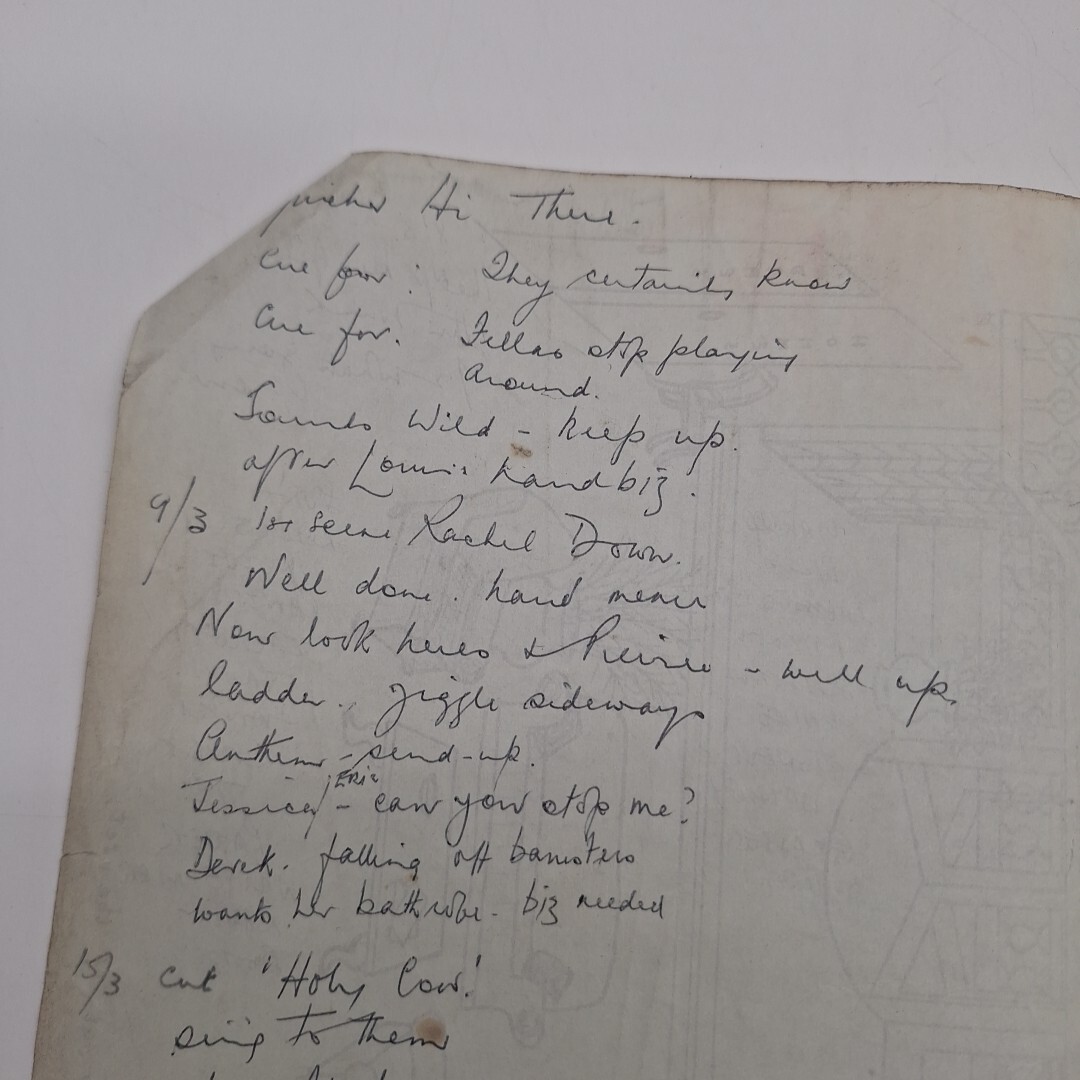 Hi There.
Cue for: They certainly know
Cue for. Fellas stop playing
around.
Sounds Wild - keep up.
after Louis hand biz.
9/3 1st scene Rachel Down.
Well done. hand
Now look heres & - well up
ladder. jiggle sideways
Anthem - send-up.
Jessica / Eric - can you stop me?
Derek. falling off banisters
wants her bathrobe - biz needed
15/3 cut 'Holy Cow!'
sing to them